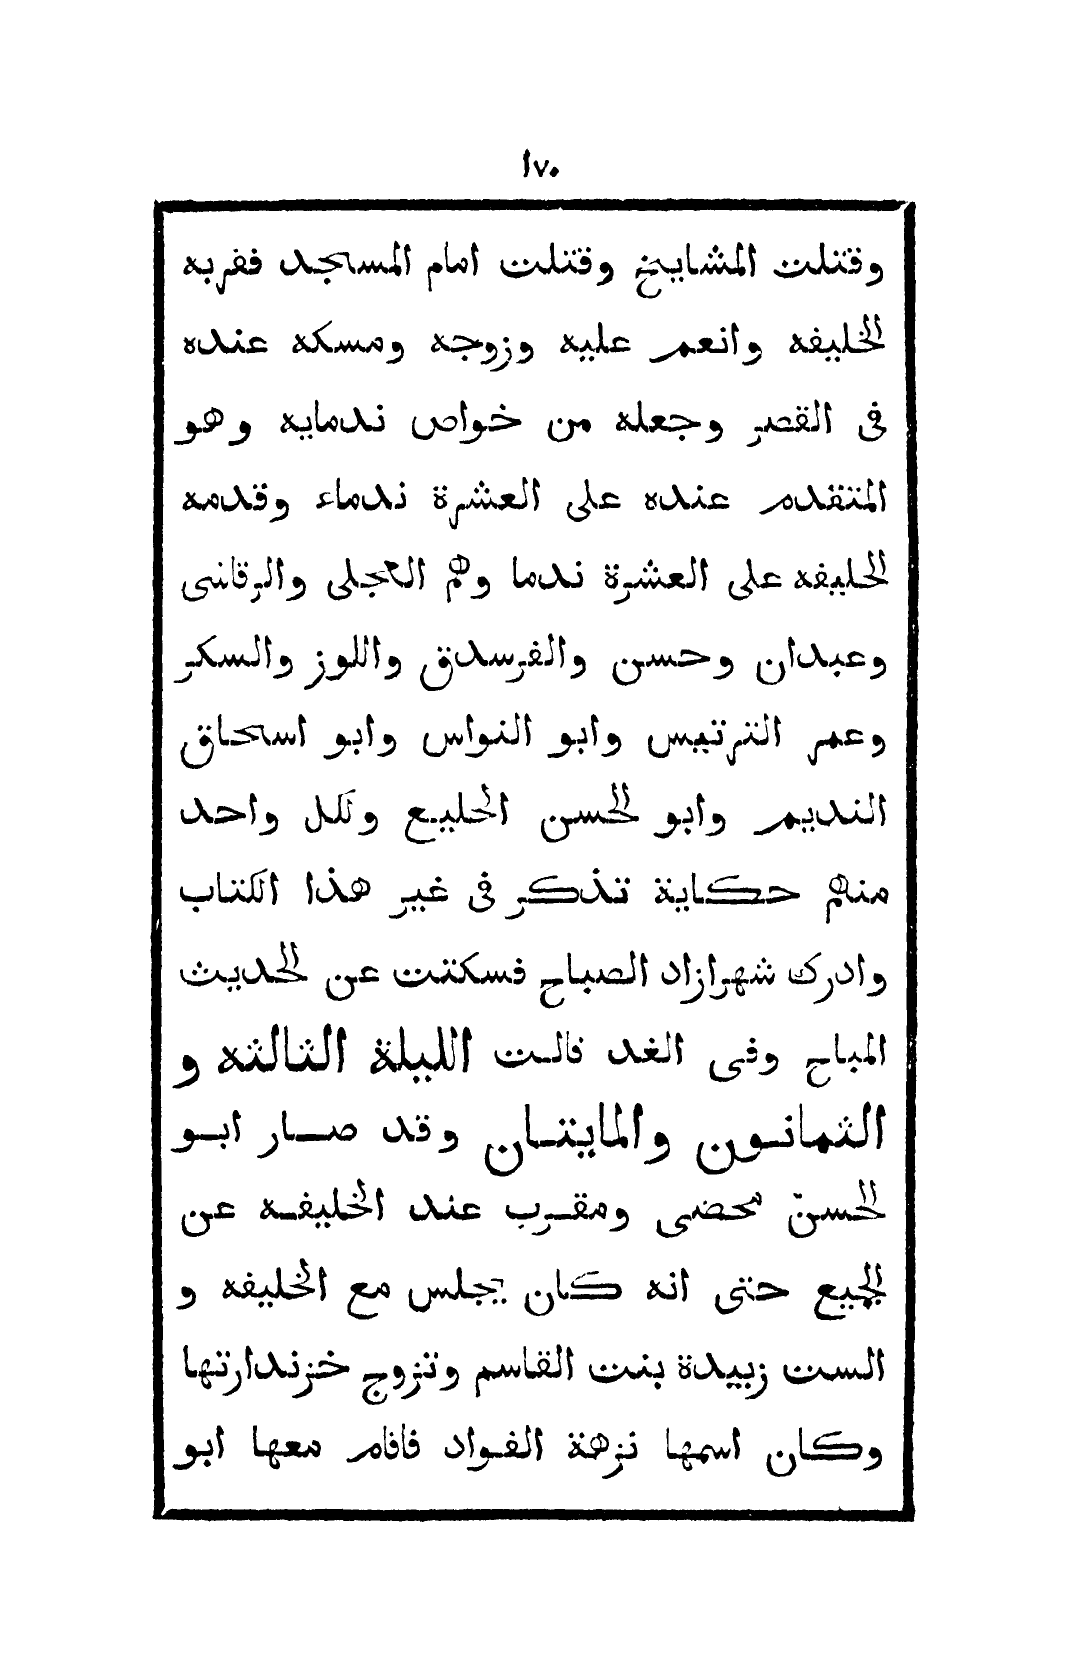 ١٧٠
وقتلت المشايخ وقتلت امام المسجد فقربه
الخليفه وانعم عليه وزوجه ومسكه عنده
فى القصر وجعله من خواص ندمايه وهو
المتقدم عنده على العشرة ندماء وقدمه
الخليفه على العشرة ندما وهم العجلى والرقاشى
وعبدان وحسن والفرسدق واللوز والسكر
وعمر الترتيس وابو النواس وابو اسحاق
النديم وابو الحسن الخليع ولكل واحد
منهم حكاية تذكر فى غير هذا الكتاب
وادرك شهرازاد الصباح فسكتت عن الحديث
المباح وفى الغد قالت الليلة الثالثه و
الثمانون والمايتان وقد صار ابو
الحسن محضى ومقرب عند الخليفه عن
الجميع حتى انه كان يجلس مع الخليفه و
الست زبيدة بنت القاسم وتزوج خزندارتها
وكان اسمها نزهة الفواد فاقام معها ابو